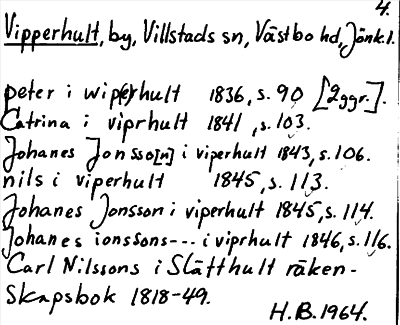 4.
Vipperhult, by, Villstads sn, Västbo hd, Jönk.l.
peter i wip(p)hult 1836, s. 90 [2ggr.].
Catrina i viprhult 1841, s. 103.
Johanes Jonsso[n] i viperhult 1843, s. 106.
nils i viperhult 1845, s. 113.
Johanes Jonsson i viperhult 1845, s. 114.
Johanes ionssons--- i viprhult 1846, s. 116.
Carl Nilssons i Slätthult räken-
skapsbok 1818-49.
H.B. 1964.